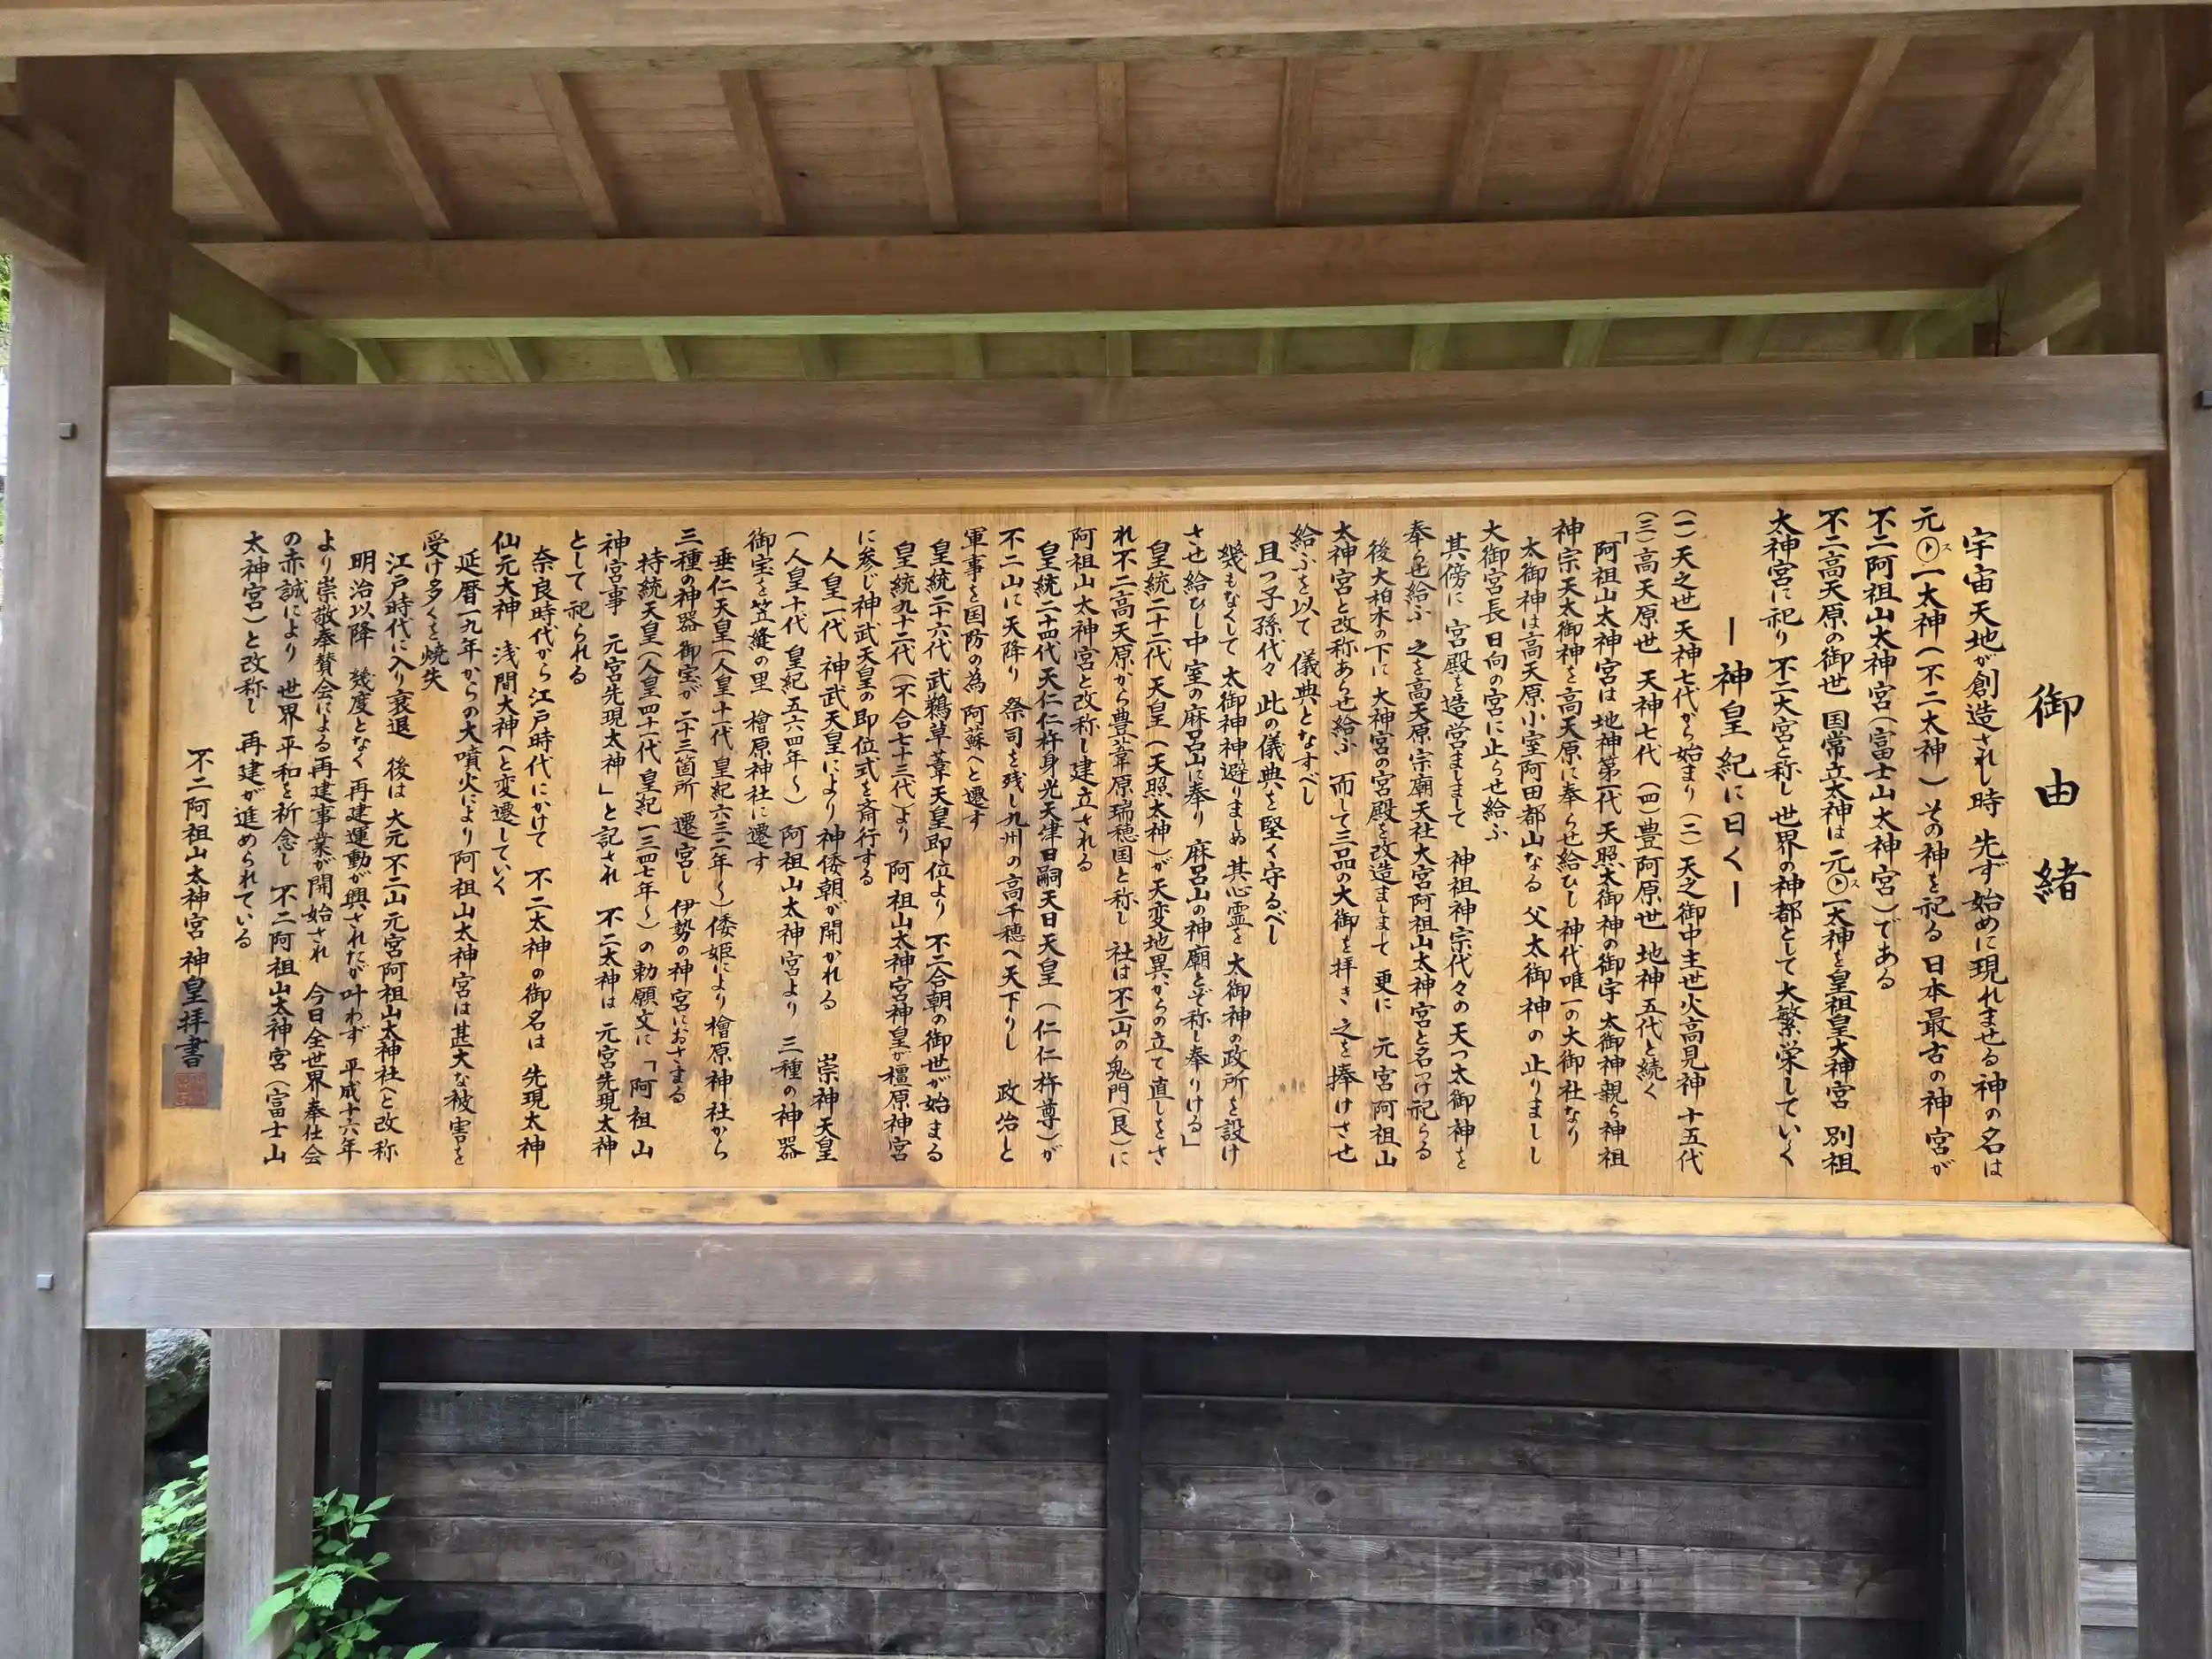 御由緒
宇宙天地が創造されし時 先ず始めに現れませる神の名は
元 ス 一太神(不二太神) その神を祀る 日本最古の神宮が
不二阿祖山太神宮(富士山太神宮)である
不二高天原の御世 国常立太神は 元 ス 一太神を皇祖皇太神宮 別祖
大神宮に祀り 不二大宮と称し 世界の神都として大繁栄していく
ー神皇紀に曰くー
(一)天之世 天神七代から始まり (二)天之御中主世火高見神十五代
(三)高天原世 天神七代 (四)豊阿原世 地神五代と続く
「阿祖山太神宮は 地神第一代 天照太御神の御宇 太御神親ら神祖
神宗天太御神を高天原に奉らせ給ひし 神代唯一の大御社なり
太御神は高天原小室阿田都山なる 父太御神の 止りましし
大御宮長 日向の宮に止らせ給ふ
其傍に 宮殿を造営ましまして 神祖神宗代々の天つ太御神を
奉らせ給ふ 之を高天原宗廟天社大宮阿祖山太神宮と名つけ祀らる
後大柏木の下に 大神宮の宮殿を改造ましまして 更に 元宮阿祖山
太神宮と改称あらせ給ふ 而して三品の大御を拝き 之を捧けさせ
給ふを以て 儀典となすべし
且つ子孫代々 此の儀典を堅く守るべし
幾もなくして 太御神神避りましぬ 其心霊を 太御神の政所を設け
させ給ひし中室の麻呂山に奉り 麻呂山の神廟とぞ称し奉りける」
皇統二十二代天皇(天照太神)が天変地異からの立て直しをさ
れ不二高天原から豊葦原瑞穂国と称し 社は不二山の鬼門(艮)に
阿祖山太神宮と改称し建立される
皇統二十四代天仁仁杵身光天津日嗣天日天皇(仁仁杵尊)が
不二山に天降り 祭司を残し九州の高千穂へ天下りし 政治と
軍事を国防の為 阿蘇へと遷す
皇統二十六代 武鵜草葺天皇即位より 不二合朝の御世が始まる
皇統九十二代(不合七十三代)より 阿祖山太神宮神皇が橿原神宮
に参じ神武天皇の即位式を斎行する
人皇一代 神武天皇により 神倭朝が開かれる 崇神天皇
(人皇十代 皇紀五六四年〜) 阿祖山太神宮より 三種の神器
御宝を笠縫の里 檜原神社に遷す
垂仁天皇(人皇十一代 皇紀六三二年〜)倭姫により檜原神社から
三種の神器 御宝が 二十三箇所 遷宮し 伊勢の神宮におさまる
持統天皇(人皇四十一代 皇紀一三四七年〜)の勅願文に 「阿祖山
神宮事 元宮先現太神」と記され 不二太神は 元宮先現太神
として 祀られる
奈良時代から江戸時代にかけて 不二太神の御名は 先現太神
仙元大神 浅間大神へと変遷していく
延暦一九年からの大噴火により阿祖山太神宮は甚大な被害を
受け多くを焼失
江戸時代に入り衰退 後は 大元不二山元宮阿祖山太神社へと改称
明治以降 幾度となく 再建運動が興されたが叶わず 平成十六年
より崇敬奉賛会による再建事業が開始され 今日全世界奉仕会
の赤誠により 世界平和を祈念し 不二阿祖山太神宮(富士山
太神宮)と改称し 再建が進められている
不二阿祖山太神宮 神皇拝書